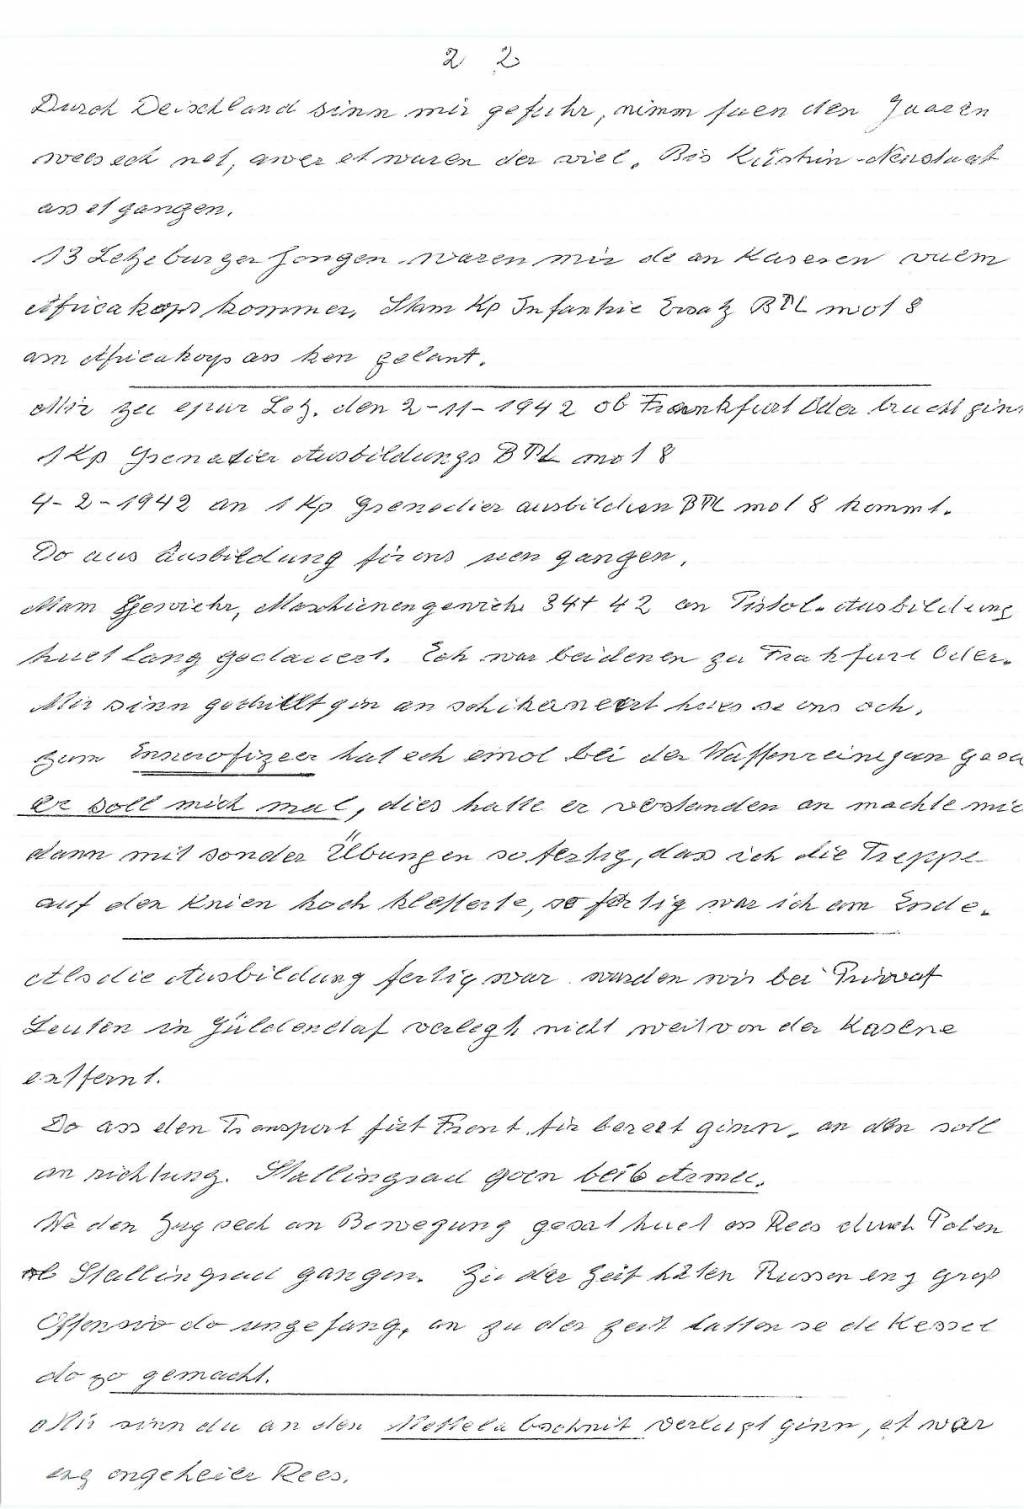 2 2
Durch Deischland sinn mir gefuhr, nimm fuen den Jaaren
wees ech net, awer et waren der viel. Bis Küstrin-Neustadt
ass et gangen.
13 Letzeburger Jongen waren mir de an Kaseren vuem
Africakops kommer, Stam Kp Infantrie Ersatz BTL mot 8
am Africakops ass ken gelant.
Mir zu epur Letz. den 2-11-1942 ob Frankfurt Oder bruecht ginn
1 Kp Grenadier Ausbildungs BTL mot 8
4-2-1942 an 1 Kp Grenedier ausbildun BTL mot 8 kommt.
Do ass Ausbildung fir ons uen gangen.
Mam Gewiehr, Maschienengewiehr 34+42 an Pistol. Ausbildung
huet lang gedauert. Ech war bei denen zu Frakfurt Oder.
Mir sinn gedrillt gin an schikaneert hues se ons och.
zum Ennerofizeer hat ech emol bei der Waffenreinigun gesa
er soll mich mal, dies hatte er verstanden an machte mic
dann mit sonder Übungen so fertig, dass ich die Treppe
auf den Knien hoch kletterte, so fertig war ich am Ende.
Als die Ausbildung fertig war wurden wir bei Privvat
Leuten in Güldendaf verlegt nicht weit von der Kasene
entfernt.
Do ass den Transport firt Front fir bereet ginn, an den soll
an richtung. Stallingrad goen bei 6 Armee.
We den Zug sech an Bewegung gesat huet ass Rees durch Polen
ob Stallingrad gangen. Zu der Zeit haten Russen eng groß
Offensiv do ungefang, an zu der zeit hatten se de Kessel
do zo gemacht.
Mir sinn du an den Mettelabschnit verluegt ginn, et war
eng ongeheier Rees.